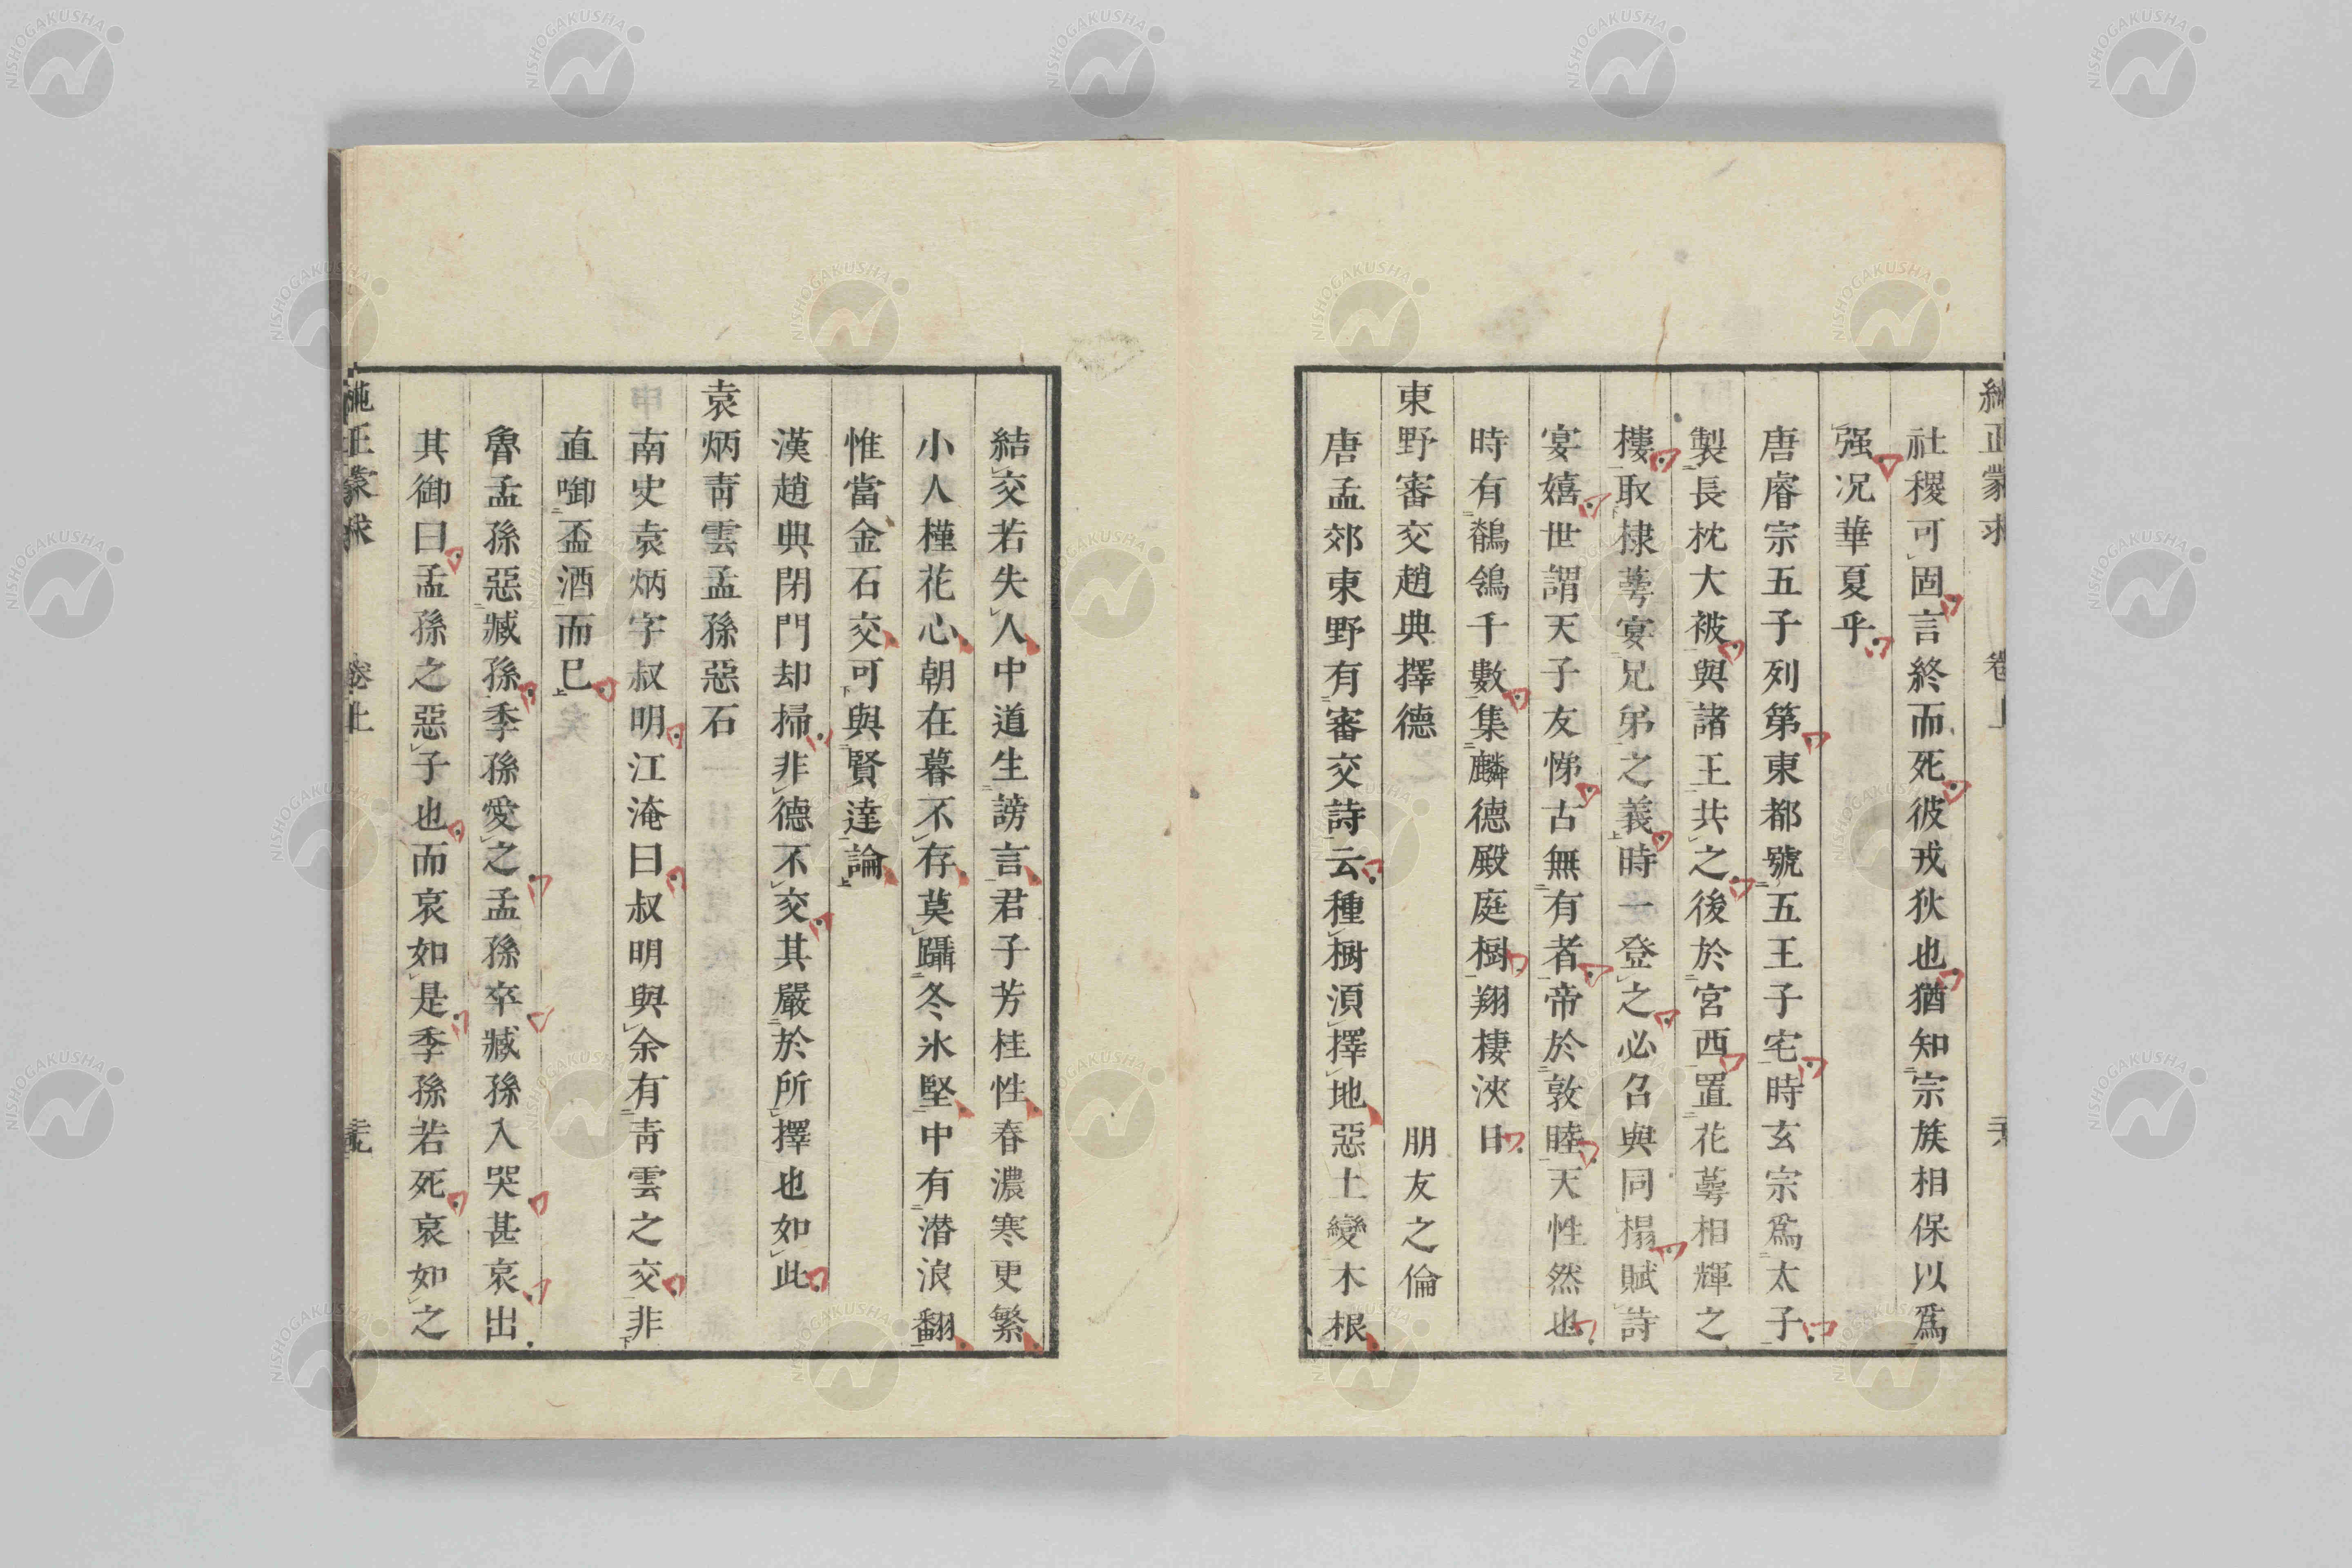 純正蒙求 卷上
社稷可固言終而死彼戎狄也猶知宗族相保以爲
强况華夏乎
唐睿宗五子列第東都號五王子宅時玄宗爲太子
製長枕大被與諸王共之後於宮西置花萼相輝之
樓取棣萼宴兄弟之義時一登之必召與同榻賦詩
宴嬉世謂天子友悌古無有者帝於敦睦天性然也
時有鶺鴒千數集麟德殿庭樹翔棲浹日
東野審交趙典擇德 朋友之倫
唐孟郊東野有審交詩云種樹湏擇地惡土變木根
結交若失人中道生謗言君子芳桂性春濃寒更繁
小人槿花心朝在暮不存莫躡冬氷堅中有潜浪翻
惟當金石交可與賢達論
漢趙典閉門却掃非德不交其嚴於所擇也如此
袁炳靑雲孟孫惡石
南史袁炳字叔明江淹曰叔明與余有靑雲之交非
直啣盃酒而已
魯孟孫惡臧孫季孫愛之孟孫卒臧孫入哭甚哀出
其御曰孟孫之惡子也而哀如是季孫若死哀如之
純正蒙求 卷上 二十九
NISHOGAKUSHA